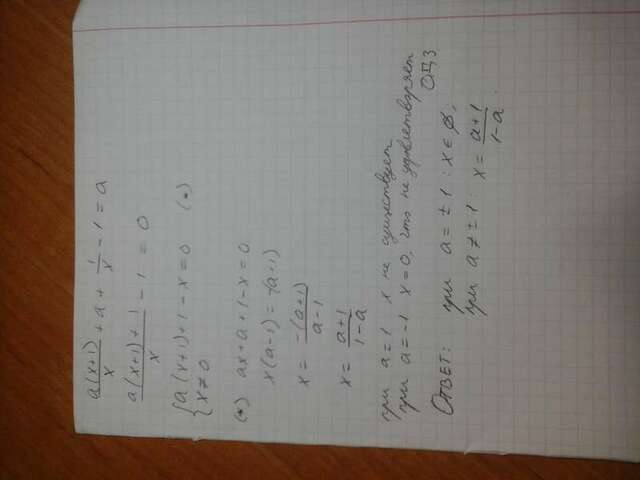 a(x+1)/x + a + 1/x - 1 = a
a(x+1)+1/x - 1 = 0
{ a(x+1)+1-x=0 (*)
x≠0
(*) ax+a+1-x=0
x(a-1) = -(a+1)
x = -(a+1)/a-1
x = a+1/1-a
при a=1 x не существует
при a=-1 x=0, что не удовлетворяет
ОДЗ
ОТВЕТ: при a=±1: x∈∅,
при a≠±1: x = a+1/1-a.